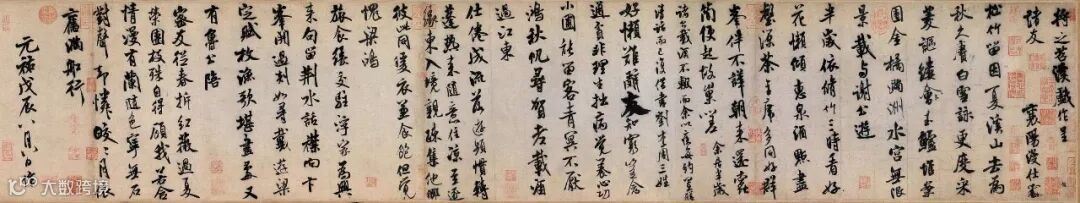 將之苕溪戲作呈
諸友 襄陽漫仕黻
松竹留因夏溪山去為
秋久賡白雪詠更度采
菱謳縷會玉鱸堆案
團金橘滿洲水宮無限
景載與謝公遊
半歲依修竹三時看好
花懶傾惠泉酒點盡
壑源茶主席多同好群
峯伴不譁朝來還蠹
簡便起故巢嗟 余居半歲
諸公載酒不輟而余以疾每約置膳
清話而已復借書劉李周三姓
好懶難辭友知窮豈念
通貧非理生拙病覺養心功
小圃能留客青冥不厭
鴻秋帆尋賀老載酒
過江東
仕倦成流落遊頻慣轉
蓬熱來隨意住涼至逐
緣東入境親疎集他鄉
彼此同暖衣兼食飽但覺
愧梁鴻
旅食緣交駐浮家為興
來句留荊水話襟向卞
峯開過剡如尋戴遊梁
定賦枚漁歌堪畫處又
有魯公陪
密友從春拆紅薇過夏
榮團枝殊自得顧我若含
情漫有蘭隨色寧無石
對聲却憐皎皎月依
舊滿船行
元祐戊辰八月八日作
大数跨境